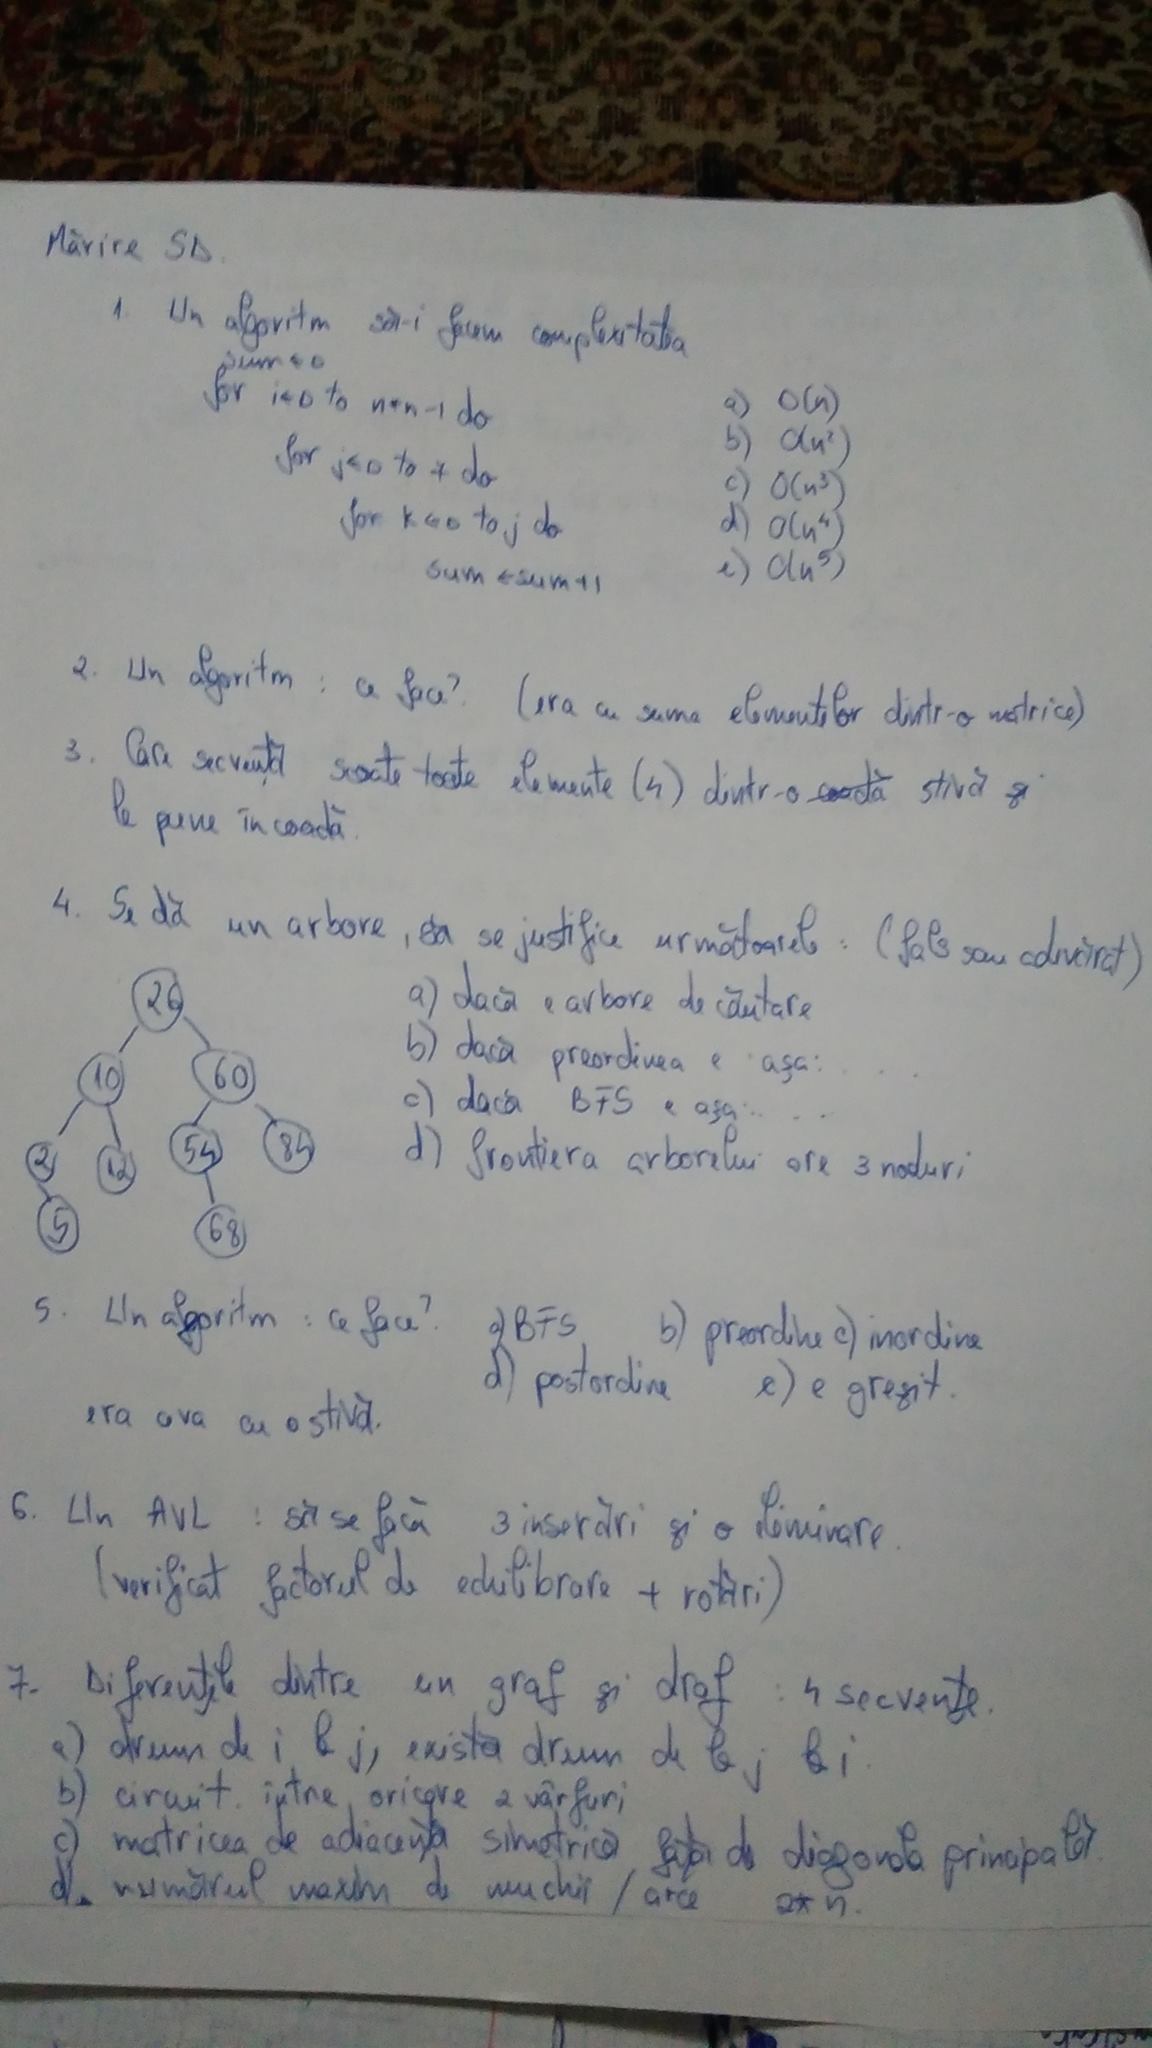 Mărire SD.
1. Un algoritm să-i facem complexitatea
sum ← 0
for i ← 0 to n*n-1 do
a) O(n)
for j ← 0 to 7 do
b) O(n²)
c) O(n³)
for k ← 0 to j do
d) O(n⁴)
sum ← sum + 1
e) O(n⁵)
2. Un algoritm : ce face? (era cu suma elementelor dintr-o matrice)
3. Care secvență scoate toate elemente (4) dintr-o coadă stivă și
le pune în coadă.
4. Se dă un arbore, să se justifice următoarele : (fals sau adevărat)
26
10 60
2 12 54 84
5 68
a) dacă e arbore de căutare
b) dacă preordinea e așa: ....
c) dacă BFS e așa: ....
d) frontiera arborelui are 3 noduri
5. Un algoritm : ce face? a) BFS b) preordine c) inordine
d) postordine e) e greșit.
era ova cu o stivă.
6. Un AVL : să se facă 3 inserări și o eliminare.
(verificat factorul de echilibrare + rotări)
7. Diferențele dintre un graf și digraf : 4 secvențe.
a) drum de i la j, exista drum de la j la i.
b) circuit. între oricare 2 vârfuri
c) matricea de adiacență simetrică față de diagonala principală.
d. numărul maxim de muchii / arce 2*n.